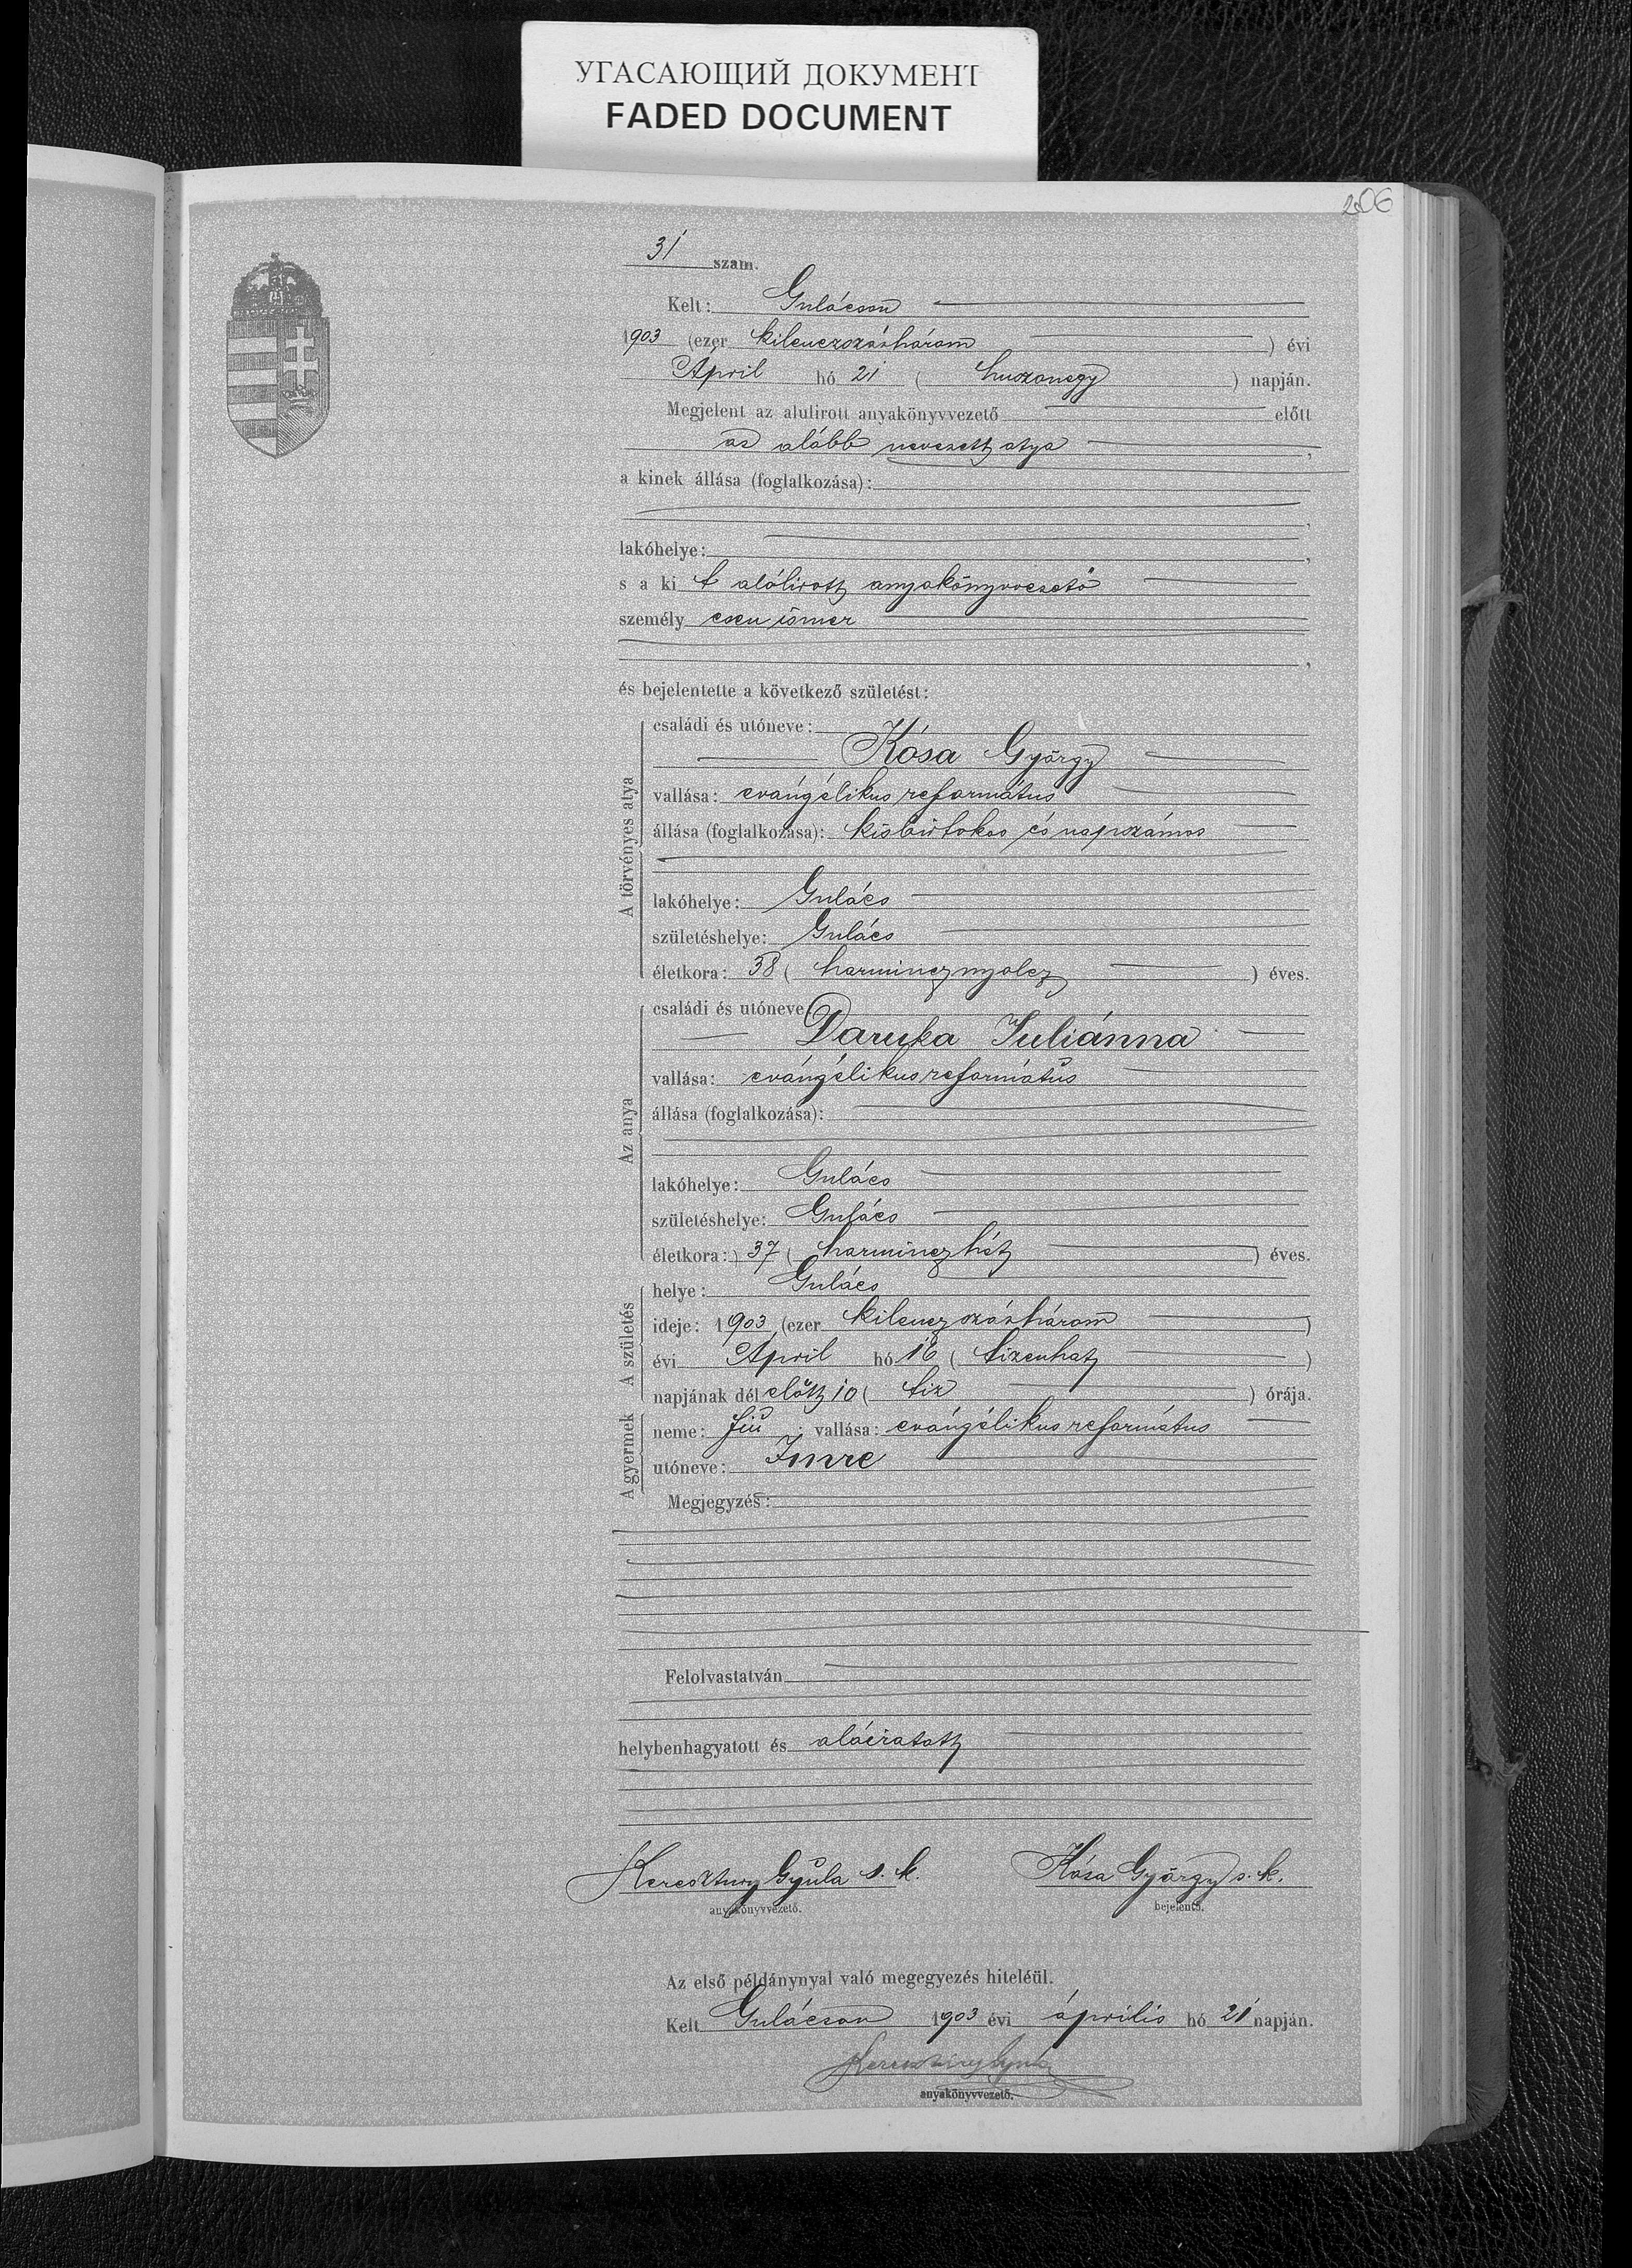 УГАСАЮЩИЙ ДОКУМЕНТ
FADED DOCUMENT
206
31 szám.
Kelt: Gulácson
1903 (ezer kilenczszázhárom) évi
Április hó 21 (huszonegy) napján.
Megjelent az alulirott anyakönyvvezető előtt
az alább nevezett atya,
a kinek állása (foglalkozása):
,
lakóhelye: ,
s a kit alólirott anyakönyvvezető
személyesen ismer
,
és bejelentette a következő születést:
A törvényes atya
családi és utóneve:
Kósa György
vallása: evángélikus református
állása (foglalkozása): kisbirtokos és napszámos
lakóhelye: Gulács
születéshelye: Gulács
életkora: 38 (harmincznyolcz) éves.
Az anya
családi és utóneve:
Daruka Juliánna
vallása: evángélikus református
állása (foglalkozása):
lakóhelye: Gulács
születéshelye: Gulács
életkora: 37 (harminczhét) éves.
A születés
helye: Gulács
ideje: 1903 (ezer kilenczszázhárom)
évi April hó 16 (tizenhat)
napjának dél előtt 10 (tiz) órája.
A gyermek
neme: fiú; vallása: evángélikus református
utóneve: Imre
Megjegyzés:
Felolvastatván
helybenhagyatott és aláiratott
Keresztury Gyula s. k.
anyakönyvvezető.
Kósa György s. k.
bejelentő.
Az első példánynyal való megegyezés hiteléül.
Kelt Gulácson 1903 évi április hó 21 napján.
Keresztury Gyula
anyakönyvvezető.